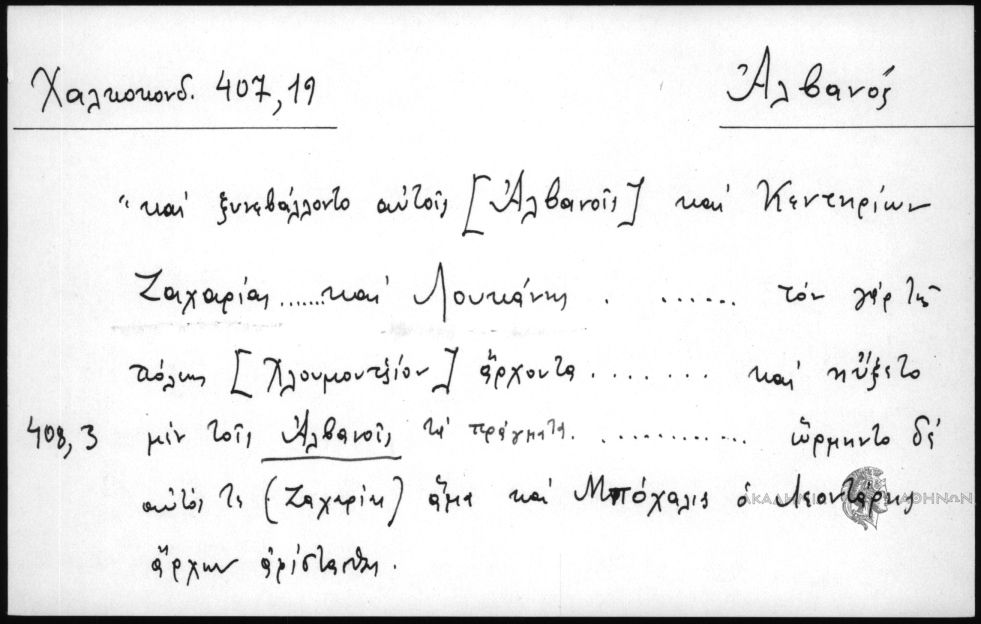 Χαλκοκονδ. 407,19
Ἀλβανός
"καὶ ξυνεβάλλοντο αὐτοῖς [Ἀλβανοῖς] καὶ Κεντηρίων
Ζαχαρίας ....... καὶ Λουκάνης . ...... τόν γάρ τῆς
πόλεως [Χλουμουτζίον] ἄρχοντα ........ καὶ ηὔξετο
408,3 μὲν τοῖς Ἀλβανοῖς τὰ πράγματα. ............ ὥρμηντο δέ
αὐτός τε (Ζαχαρίας) ἅμα καὶ Μπόχαλις ὁ Λεοντάρης
ἄρχων
ΑΚΑΔΗΜΙΑ ΑΘΗΝΩΝ